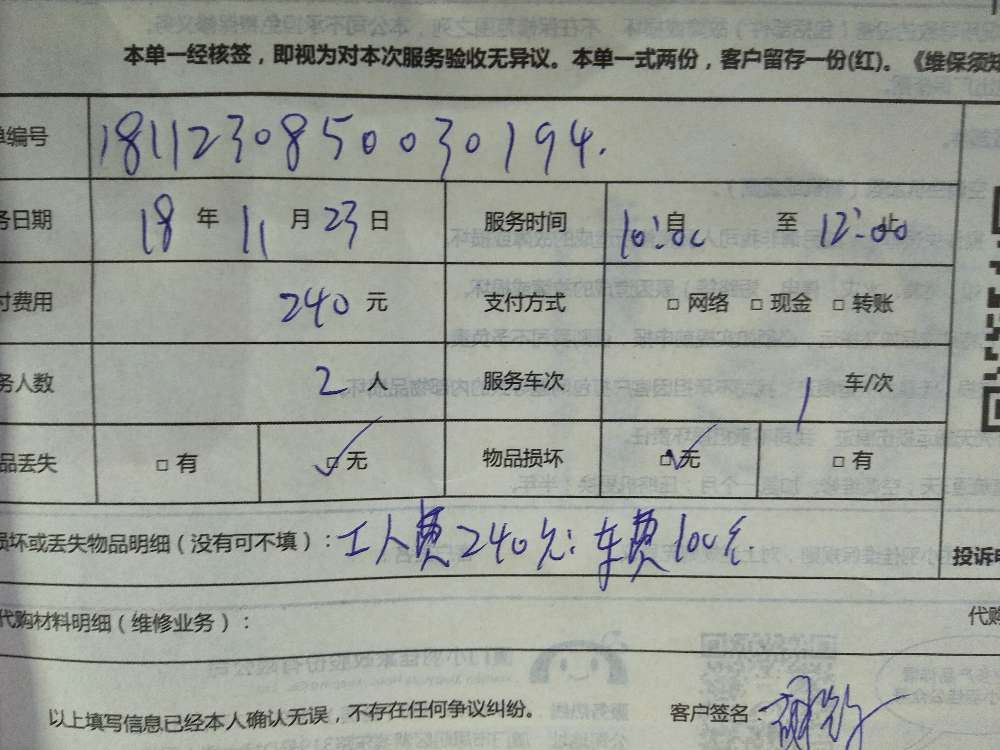 本单一经核签，即视为对本次服务验收无异议。本单一式两份，客户留存一份(红)。《维保须知
单编号 18112308500030194.
务日期 18 年 11 月 23 日 服务时间 10:00 自 至 12:00 止
付费用 240 元 支付方式 □ 网络 □ 现金 □ 转账
务人数 2 人 服务车次 1 车/次
品丢失 □ 有 □ 无 物品损坏 □ 无 □ 有
损坏或丢失物品明细（没有可不填）：工人费240元；车费100元.
投诉电
代购材料明细（维修业务）： 代购
以上填写信息已经本人确认无误，不存在任何争议纠纷。 客户签名：